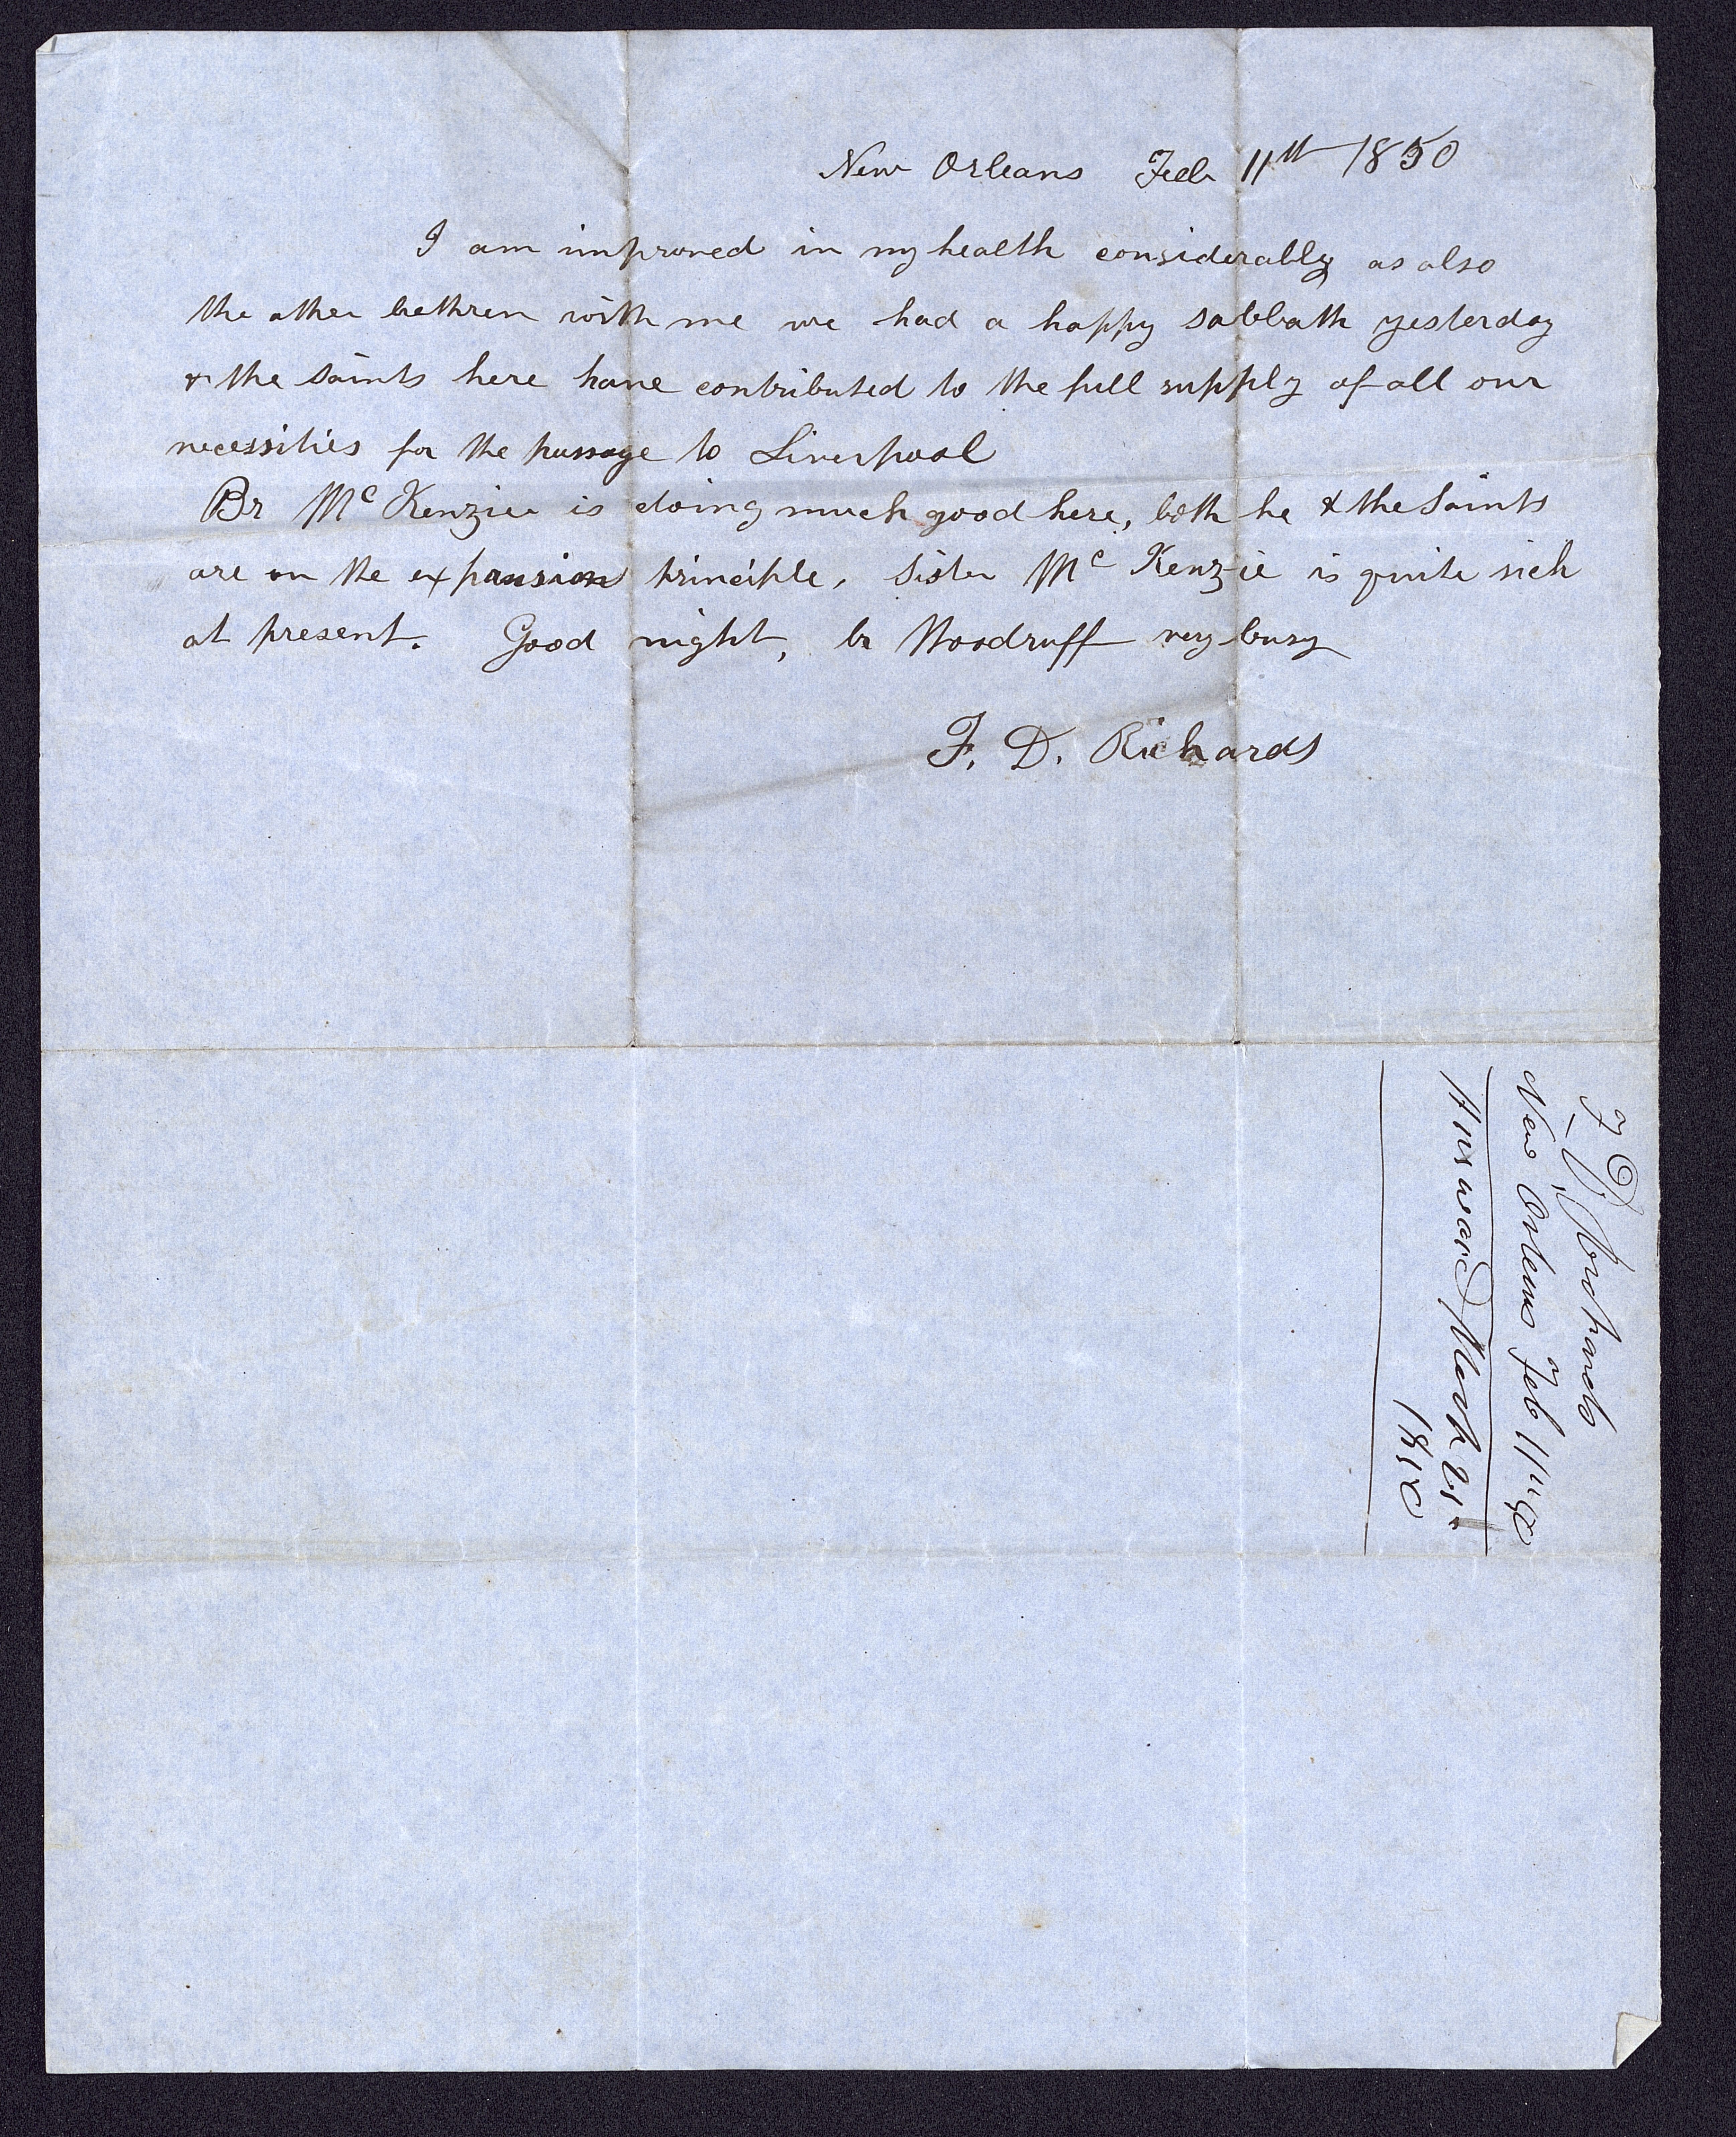 New Orleans Feb 11th 1850
I am improved in my health considerably as also
the other brethren with me we had a happy sabbath yesterday
& the saints here have contributed to the full supply of all our
necessities for the passage to Liverpool
Br McKenzie is doing much good here, both he & the Saints
are on the expansion principle, Sister McKenzie is quite sick
at present. Good night, br Woodruff very busy
F. D. Richards
F D. Richards
New Orleans Feb 11th 50
Answared March 21st
1850